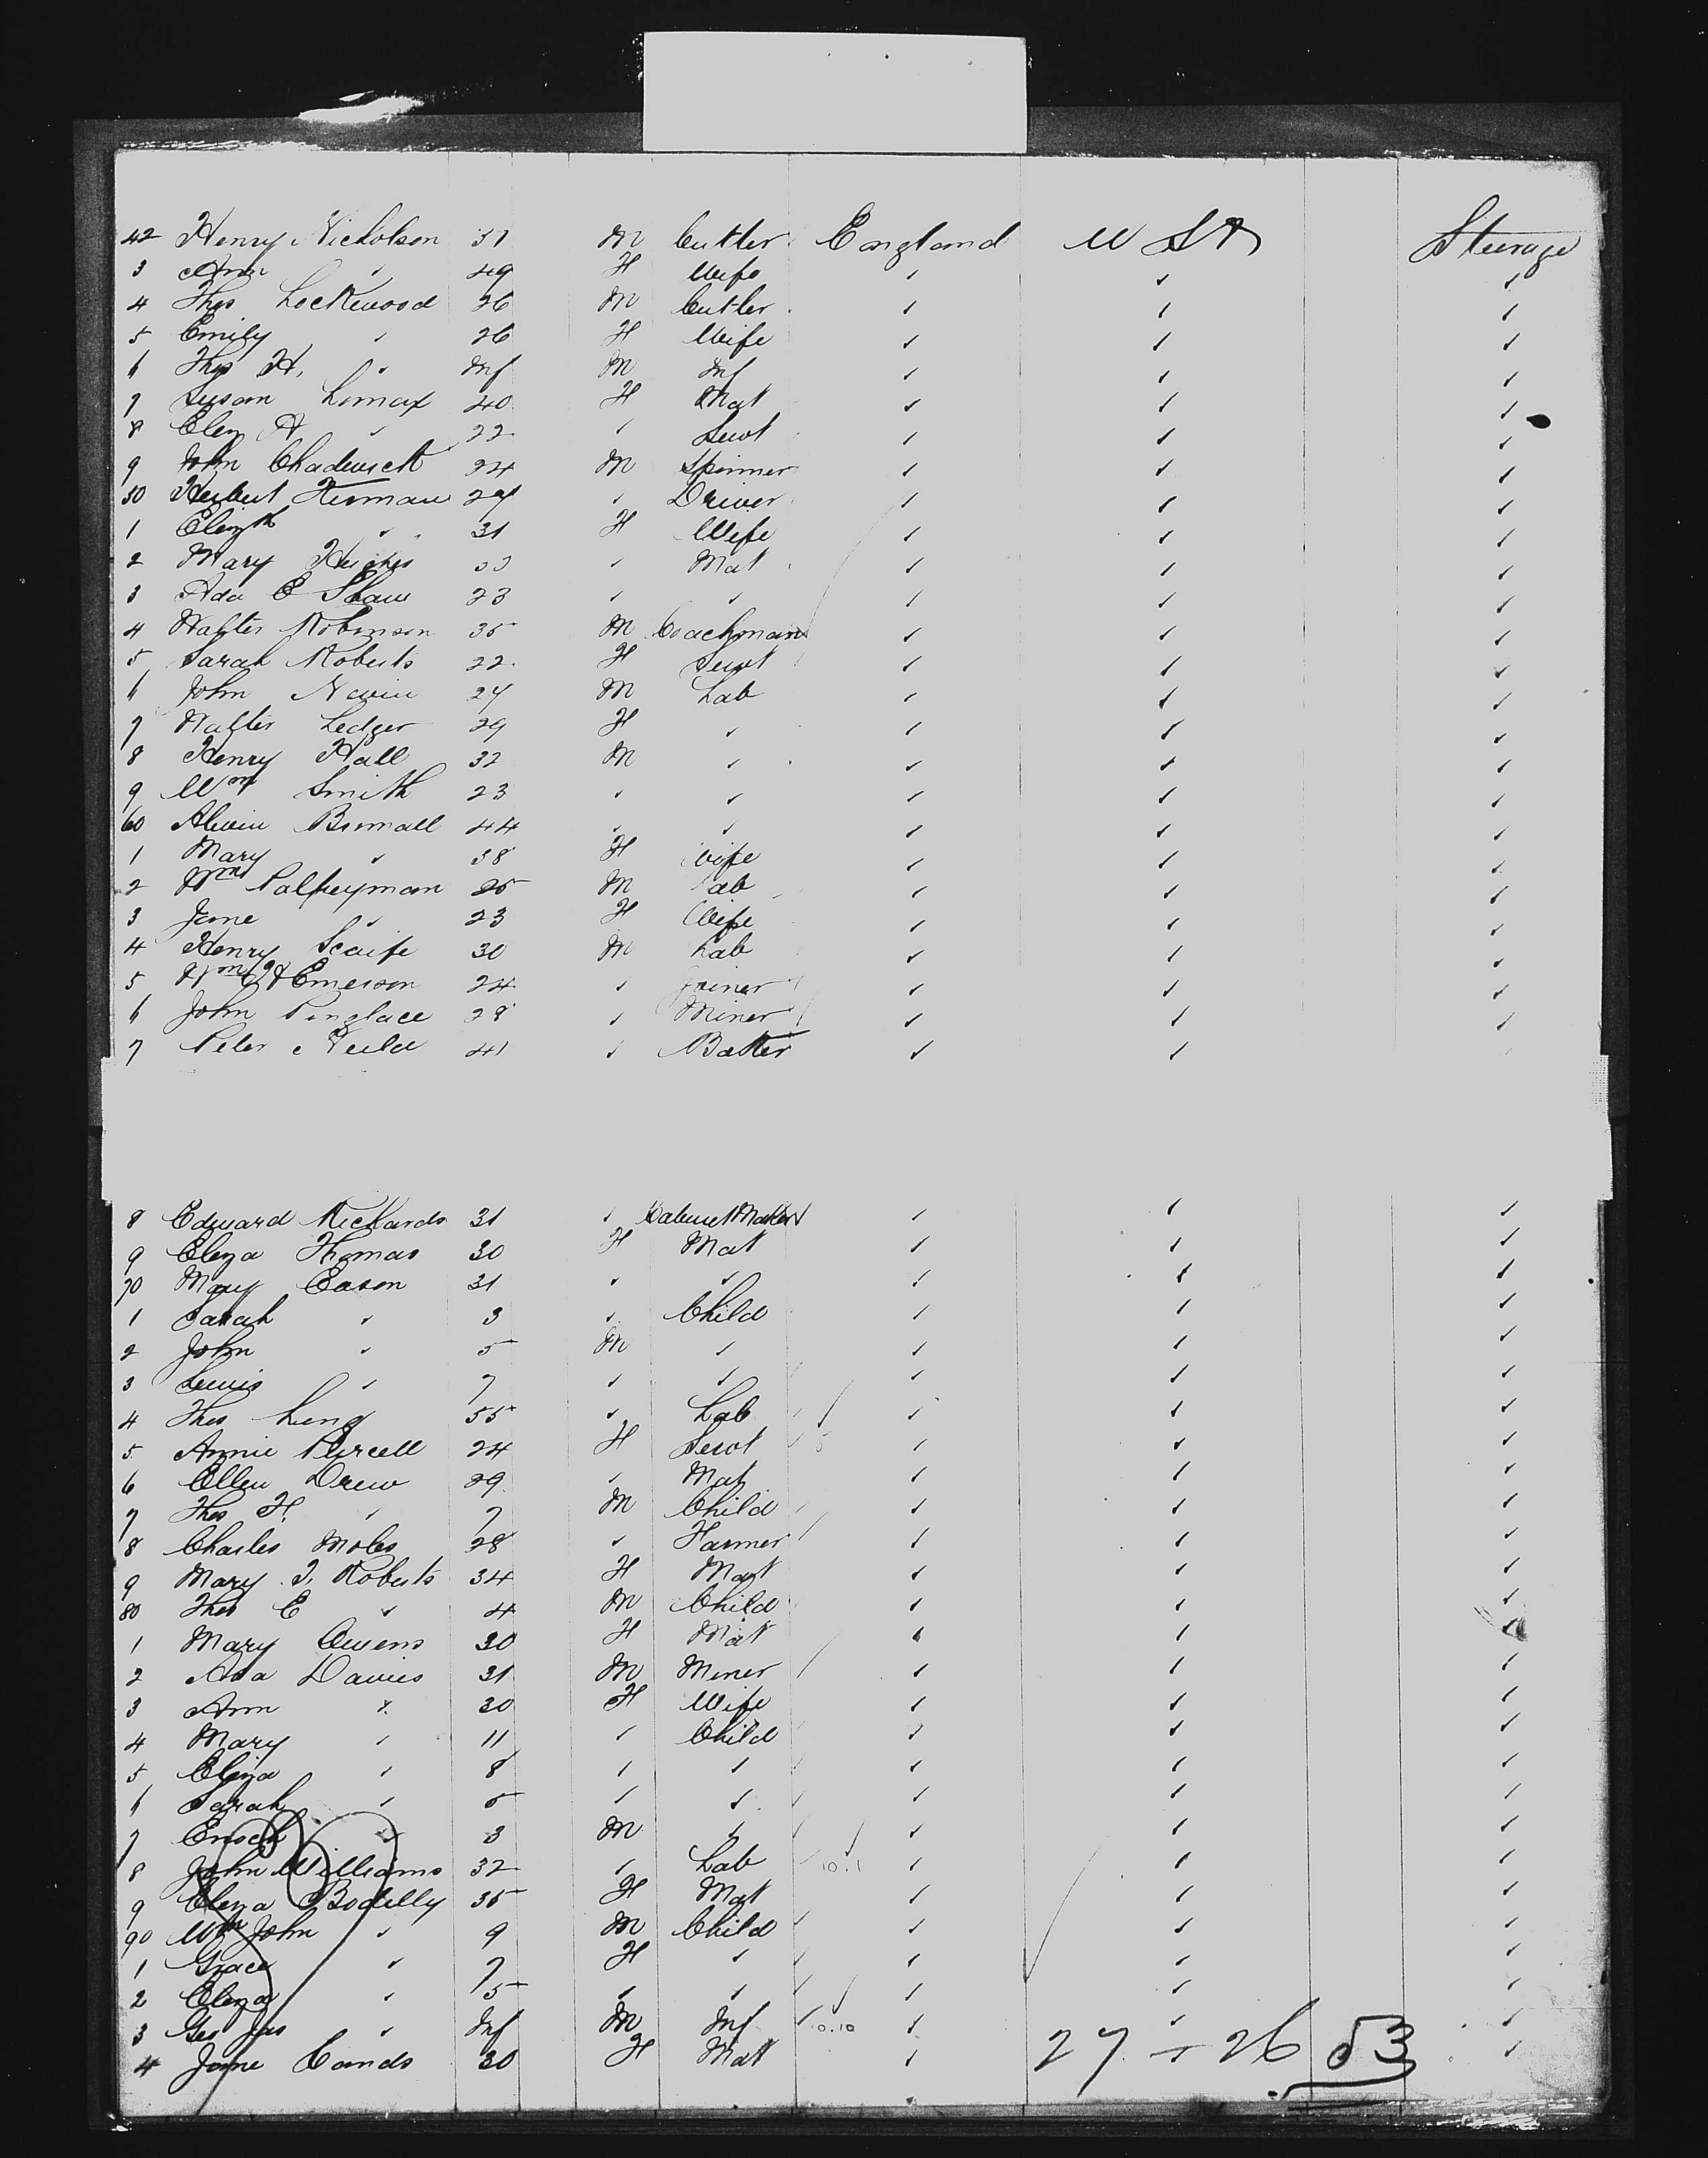 42 Henry Nicholson 51 M Cutler England U St Steerage
3 Ann " 49 F Wife " " "
4 Thos Lockwood 26 M Cutler " " "
5 Emily " 26 F Wife " " "
6 Thos H. " Inf M Inf " " "
7 Susan Lomax 40 F Mat " " "
8 Eliz A " 22 " Servt " " "
9 John Chadwick 24 M Spinner " " "
50 Herbert 29 " Driver " " "
1 Elizth " 31 F Wife " " "
2 Mary Hughes 33 " Mat " " "
3 Ada E Shaw 23 " " " " "
4 Walter Robinson 35 M Coachman " " "
5 Sarah Roberts 22 F Servt " " "
6 John 24 M Lab " " "
7 Walter Ledger 29 F " " " "
8 Henry Hall 32 M " " " "
9 Wm Smith 23 " " " " "
60 Binnall 44 " " " " "
1 Mary " 38 F Wife " " "
2 Wm Palfreyman 25 M Lab " " "
3 Jane " 23 F Wife " " "
4 Henry Scaife 30 M Lab " " "
5 Wm Emerson 24 " Joiner " " "
6 John 28 " Miner " " "
7 Peter 41 " " " "
8 Edward Rickards 31 " Cabinet Maker " " "
9 Eliza Thomas 30 F Mat " " "
70 Mary Eason 31 " " " " "
1 Sarah " 3 " Child " " "
2 John " 5 M " " " "
3 Lewis " 7 " " " " "
4 Thos 55 " Lab " " "
5 Annie Purcell 24 F Servt " " "
6 Ellen Drew 29 " Mat " " "
7 Thos H. " 7 M Child " " "
8 Charles Moles 28 " Farmer " " "
9 Mary J. Roberts 34 F Mat " " "
80 Thos E " 4 M Child " " "
1 Mary Owens 30 F Mat " " "
2 Davies 31 M Miner " " "
3 Ann " 30 F Wife " " "
4 Mary " 11 " Child " " "
5 Eliza " 8 " " " " "
6 Sarah " 5 " " " " "
7 Enoch " 3 M " " " "
8 John Williams 32 " Lab " " "
9 Eliza Bodilly 35 F Mat " " "
90 Wm John " 9 M Child " " "
1 Grace " 7 F " " " "
2 Eliza " 5 " " " " "
3 Geo Jas " Inf M Inf 10.10 " " "
4 Jane 30 F Mat " 27 + 26 53 "